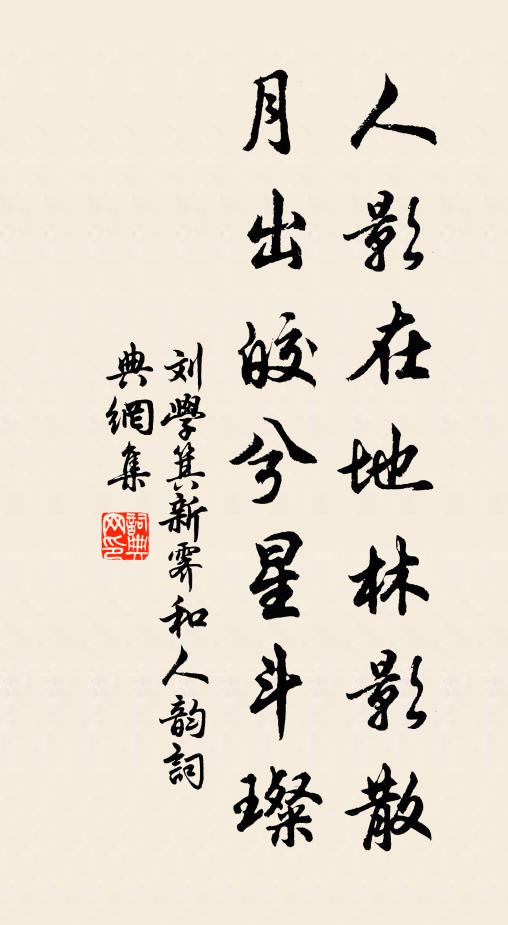 人影在地林影散
月出皎兮星斗璨
刘學箕新霽和人韵詞
典網集
詞典網印